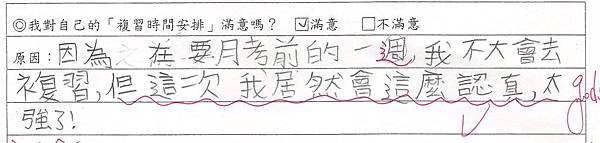 ◎我對自己的「複習時間安排」滿意嗎? ☑滿意 □不滿意
原因:因為 在要月考前的一週我不大會去
複習,但這次我居然會這麼認真,太 good
強了!